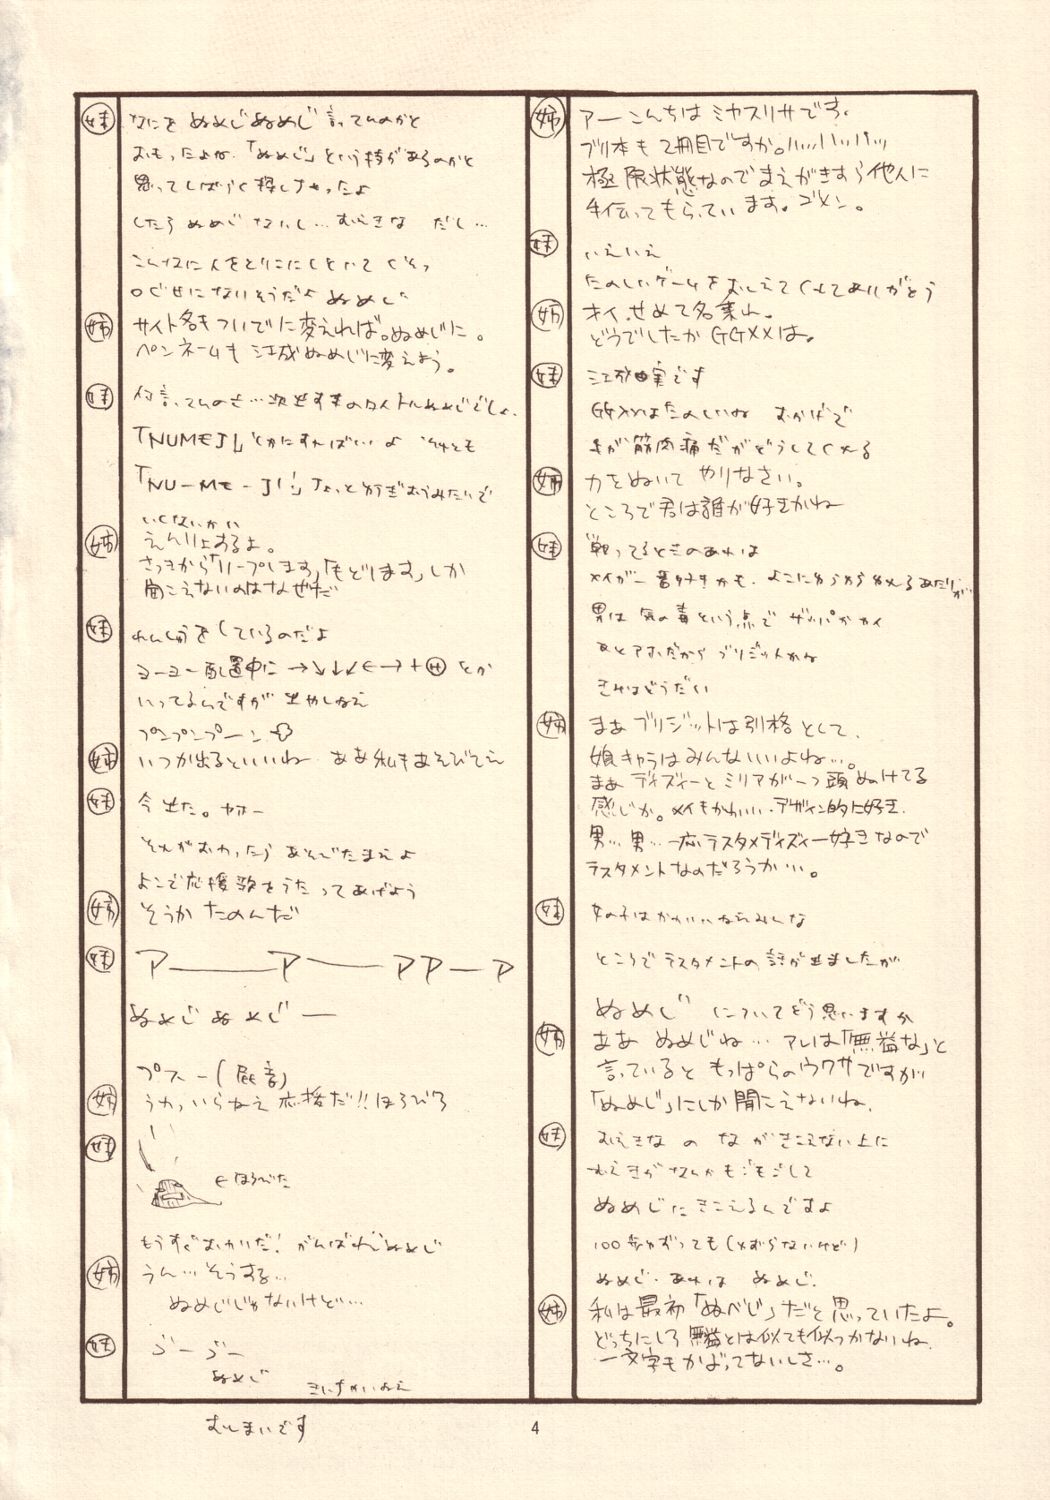 姉 アー こんちは ミヤスリサです。
ブリ本も2冊目ですか。ハッハッハッ
極限状態なのでまえがきすら他人に
手伝ってもらっています。ゴメン。
妹 いえいえ
たのしいゲームをおしえてくれてありがとう
姉 オイ、せめて名乗れ。
どうでしたかGGXXは。
妹 江成由実です
GGXXはたのしいね おかげで
手が筋肉痛だがどうしてくれる
姉 力をぬいて やりなさい。
ところで君は誰が好きかね
妹 戦ってるときのあれは
メイが一番好きかも。よこにゆらゆらゆれるあたりが
男は 気の毒という点で ザッパかカイ
あとアホだから ブリジットかな
きみはどうだい
姉 まあ ブリジットは別格として、
娘キャラはみんないいよね…。
まあディズィーとミリアが一つ頭ぬけてる
感じか。メイもかわいい・デザイン的に好き。
男…男…一応テスタメディズィー好きなので
テスタメントなのだろうか…。
妹 女の子はかわいいならみんな
ところでテスタメントの話が出ましたが
ぬめじ についてどう思いますか
姉 ああ ぬめじね… アレは「無益な」と
言っていると もっぱらのウワサですが
「ぬめじ」にしか聞こえないね。
妹 むえきな の な がきこえない上に
むえきがなんかもごもごして
ぬめじにきこえるんですよ
100歩ゆずっても(ゆずらないけど)
ぬめじ・あれは ぬめじ。
姉 私は最初「ぬべじ」だと思っていたよ。
どっちにしろ無益とは似ても似つかないね
一文字もかぶってないしさ…。
妹 なにを ぬめじぬめじ 言ってんのかと
おもったよね。「ぬめじ」という技があるのかと
思ってしばらく探しちゃったよ
したら ぬめじ ないし… むえきな だし…
こんなに人をとりこにしといて くそっ
口ぐせになりそうだよ ぬめじ
姉 サイト名もついでに変えれば。ぬめじに。
ペンネームも江成ぬめじに変えよう。
妹 何言ってんのさ…次出す本のタイトルぬめじでしょ。
「NUMEJI」とかにすればいいよ それとも
「NU-ME-JI」
いくないかい
姉 えんりょするよ。
さっきから「ループします」「もどします」しか
聞こえないのはなぜだ
妹 れんしゅうをしているのだよ
ヨーヨー配置中に →↘↓↙←→+Ⓗ とか
いってるんですが 出やしねえ
プンプンプーン
姉 いつか出るといいね ああ 私もあそびてえ
妹 今出た。ヤホー
それがおわったら あそびたまえよ
よこで応援歌をうたってあげよう
姉 そうか たのんだ
妹 アーーアーーアアーア
ぬめじ ぬめじー
プスー(屁音)
姉 うわっ いらねえ 応援だ!! ほろびろ
妹 ←ほろびた
もうすぐおわりだ! がんばれ ぬめじ
姉 うん…そうする…
ぬめじじゃないけど…
妹 ぶーぶー
ぬめじ
おしまいです
4